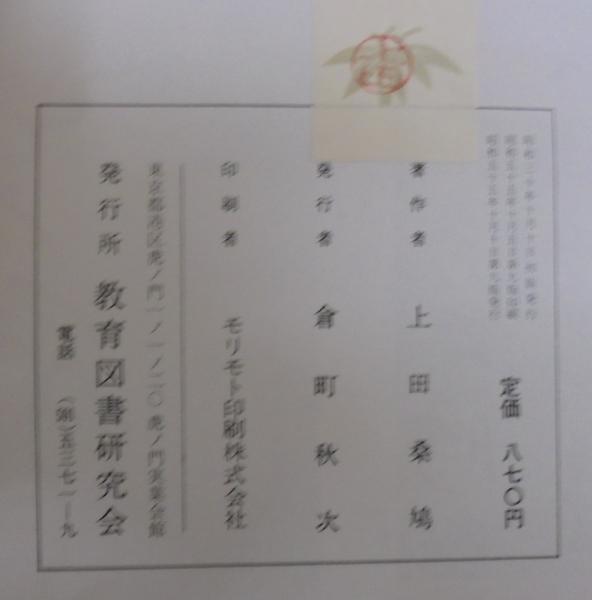 昭和三十年十月十日初版発行
昭和五十五年十月五日第九版印刷
昭和五十五年十月十日第九版発行
定価 八七〇円
著作者 上田桑鳩
発行者 倉町秋次
印刷者 モリモト印刷株式会社
東京都港区虎ノ門一ノ一ノ二〇 虎ノ門実業会館
発行所 教育図書研究会
電話 五三七一―九